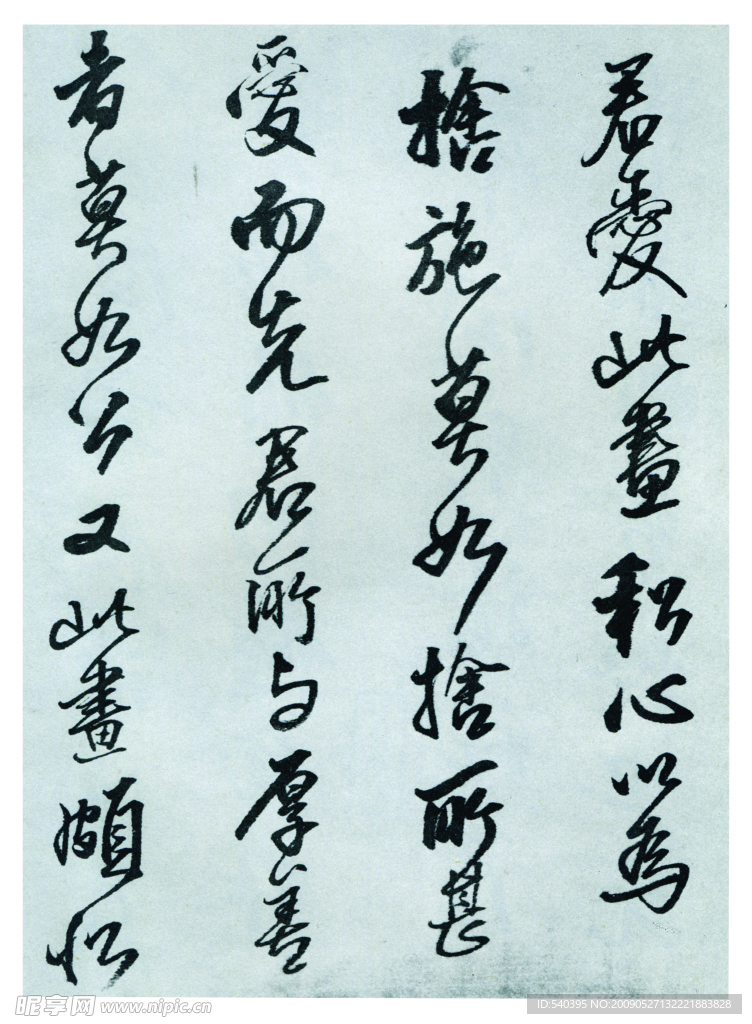 君愛此畫私心以為
捨施莫如捨所甚
愛而先君所与厚善
者莫如公又此畫頗似
昵享网 www.nipic.cn
ID:540395 NO:20090527132221883828